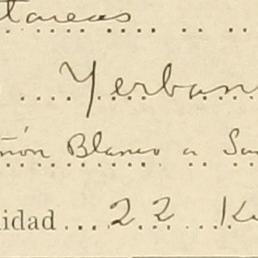 tareas
Yerban
ñón Blanco a San
nidad 22 K